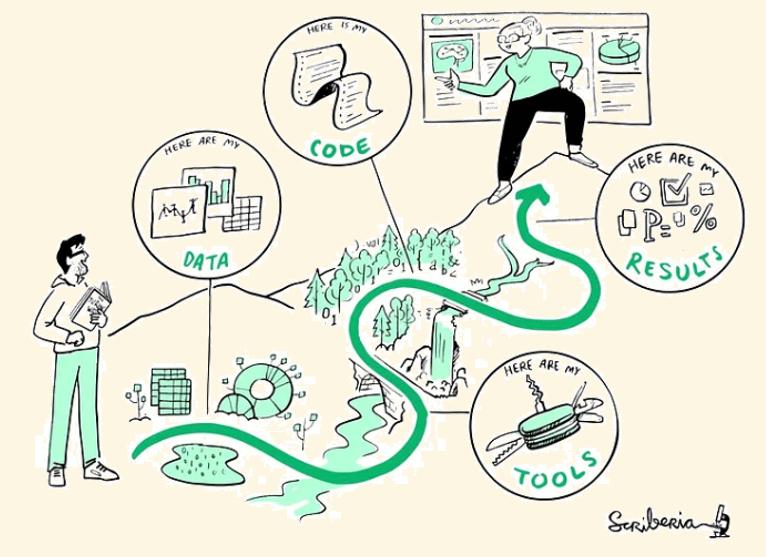 HERE IS MY
CODE
HERE ARE MY
DATA
HERE ARE MY
P= %
RESULTS
HERE ARE MY
TOOLS
Scriberia